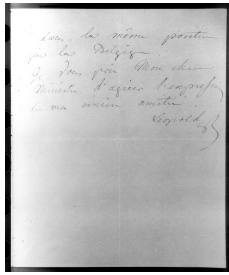 dans la même position
que la Belgique
Je vous prie Mon cher
Ministre d'agréer l'expression
de ma sincère amitié
Léopold